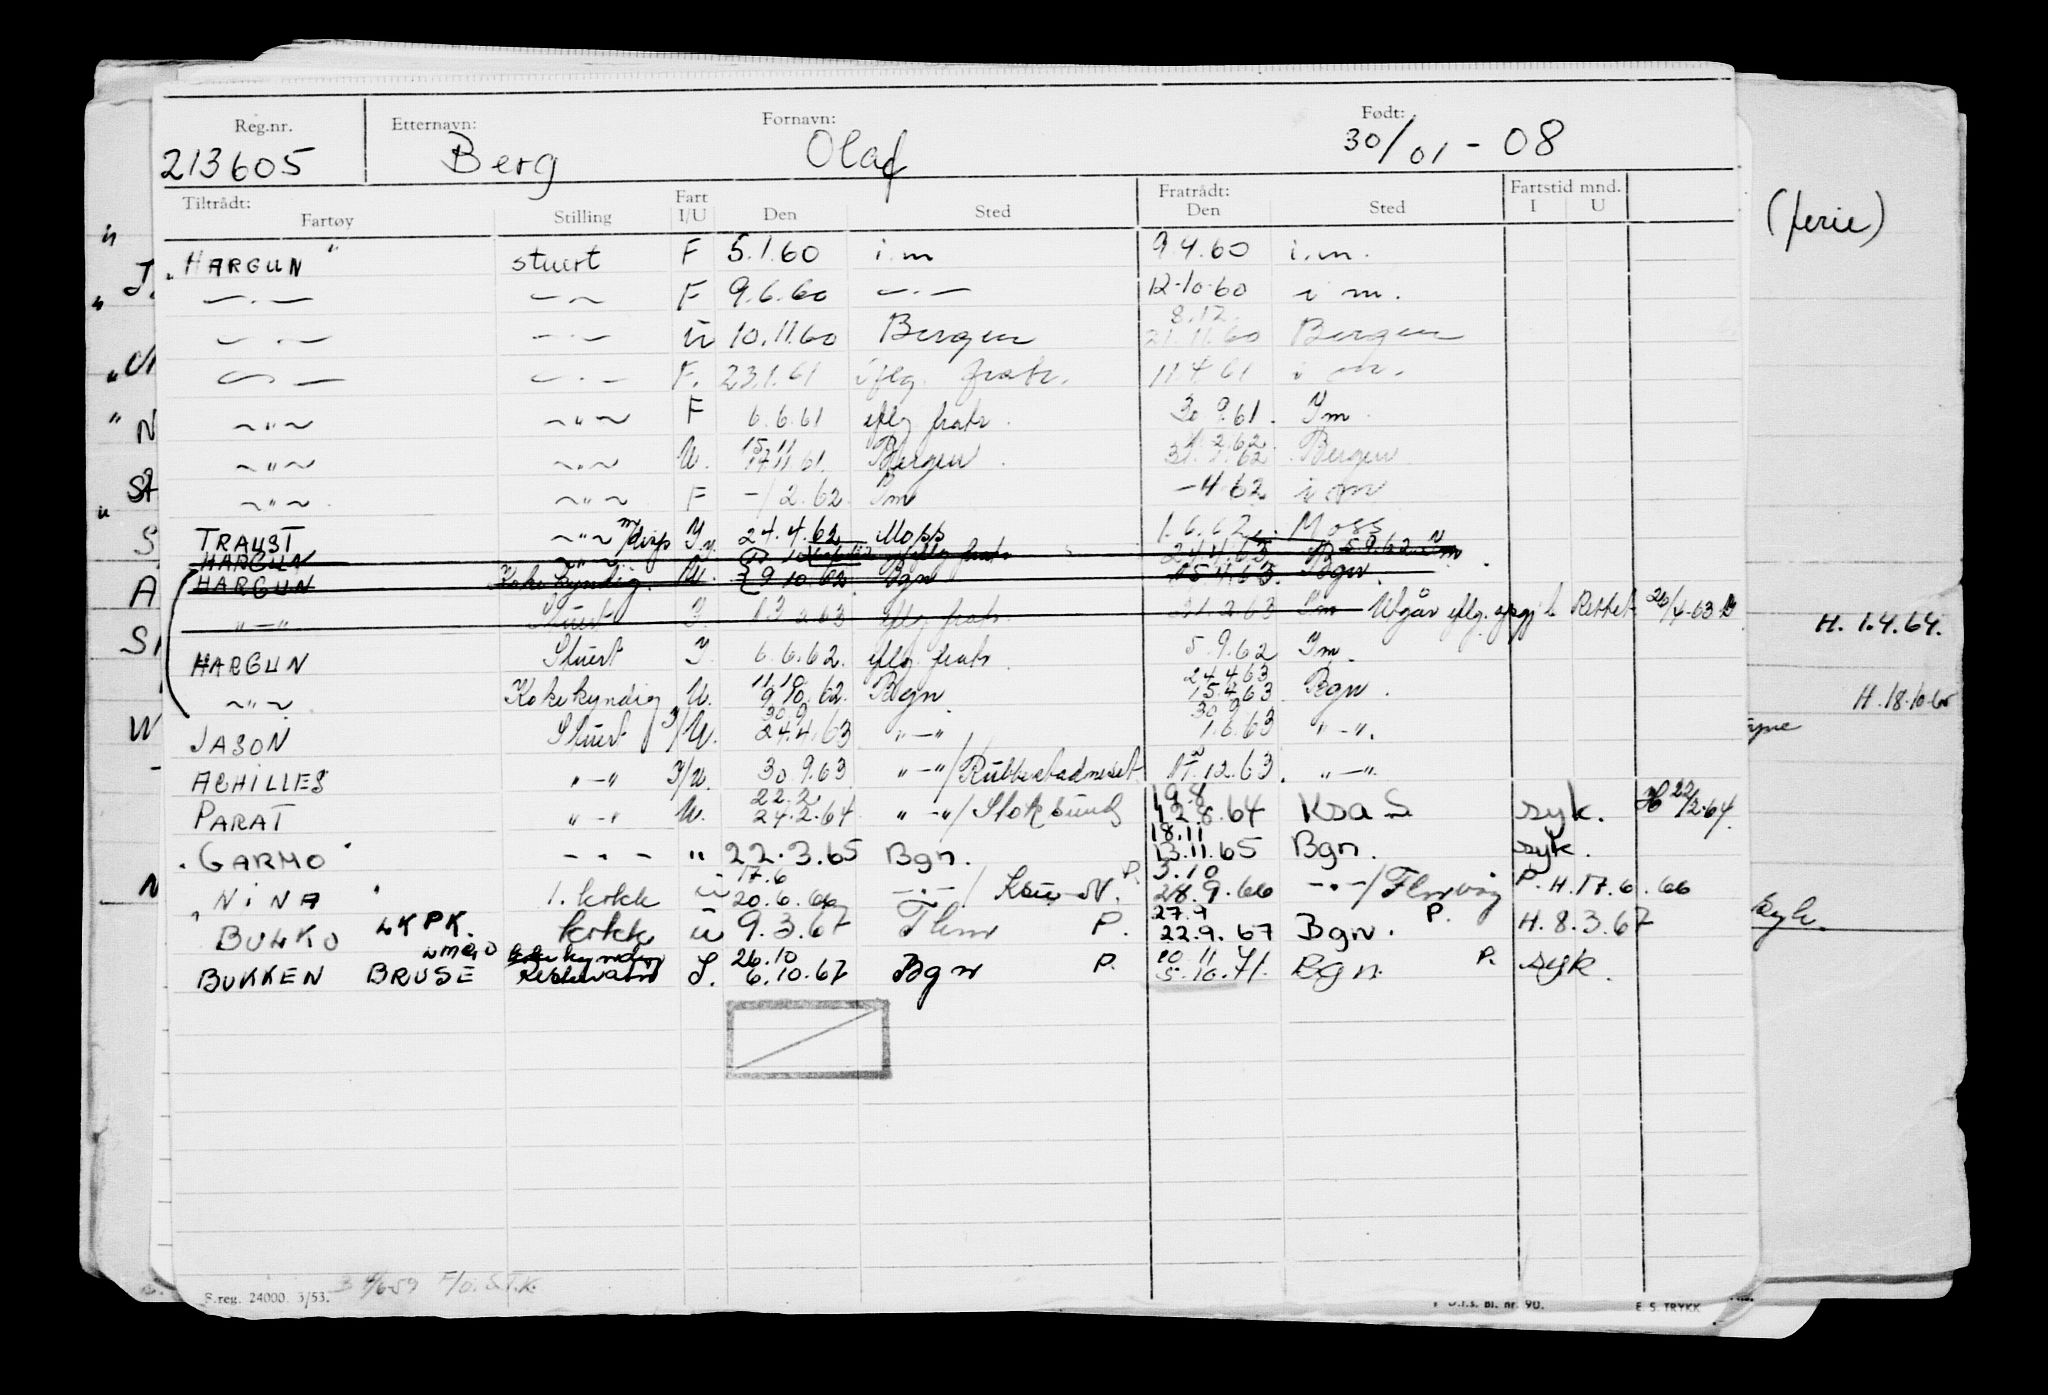 Reg.nr. Etternavn: Fornavn: Født:
213605 Berg Olaf 30/01 - 08
Tiltrådt: Fratrådt: Fartstid mnd.
Fartøy Stilling Fart I/U Den Sted Den Sted I U
(ferie)
"HARGUN" stuert F 5.1.60 i.m 9.4.60 i.m.
— . — — . — F 9.6.60 — . — 12.10.60 i m.
8.12
— . — — . — U 10.11.60 Bergen 21.11.60 Bergen
— . — — . — F. 23.1.61 iflg. fratr. 11.4.61 i m.
~"~ ~"~ F 6.6.61 eflg fratr. 30.9.61. Im
15.11 1.2.62
~"~ ~"~ U. 17.11.61. Bergen 31.1.62 Bergen
~"~ ~"~ F -/2.62. Im -4.62 i m
TRAUST ~"~ m/disp 24.4.62 Moss 1.6.62 Moss
HARGUN eflg fratr 24.4.63 5.9.62 Im.
HARGUN Kokekyndig. U. 9.10.62 Bgn 15.4.63. Bgn.
"—" Stuert I. 13.2.63 eflg fratr. 21.2.63 Im Utgår eflg. Rettet 26/4-63
H. 1.4.64.
HARGUN Stuert I. 6.6.62. eflg fratr. 5.9.62 Im.
11.10 24.4.63
~"~ Kokekyndig U. 9.10.62. Bgn. 15.4.63 Bgn.
H. 18.10.65
30.9 30.9
JASON Stuert I/U. 24.4.63 "—" 1.6.63 "—".
ACHILLES "—" I/U. 30.9.63 "—"/Rubbestadneset 17.12.63. "—"
22.2 19.8
PARAT "—" U. 24.2.64 "—"/Stoksund 12.8.64 Ksa S syk. H 22/2.64.
18.11
"GARMO" — " — " 22.3.65 Bgn. 13.11.65 Bgn. syk.
17.6 3.10
"NINA" 1. kokk U 20.6.66 — . —/Ksu-N. P. 28.9.66 — . —/Florvåg P. H.17.6.66
27.9
BULKO LKPK. kokk U 9.3.67 Flor P. 22.9.67 Bgn. P. H.8.3.67
LMGO kokekyndig 26.10 10.11
BUKKEN BRUSE restevann S. 6.10.67 Bgn P. 5.10.71. Bgn. P. syk.
syk.
S.reg. 24000. 3/53. 3 4/6-59 F/O. S.T.K.
Bl. nr. 90. E. S. TRYKK